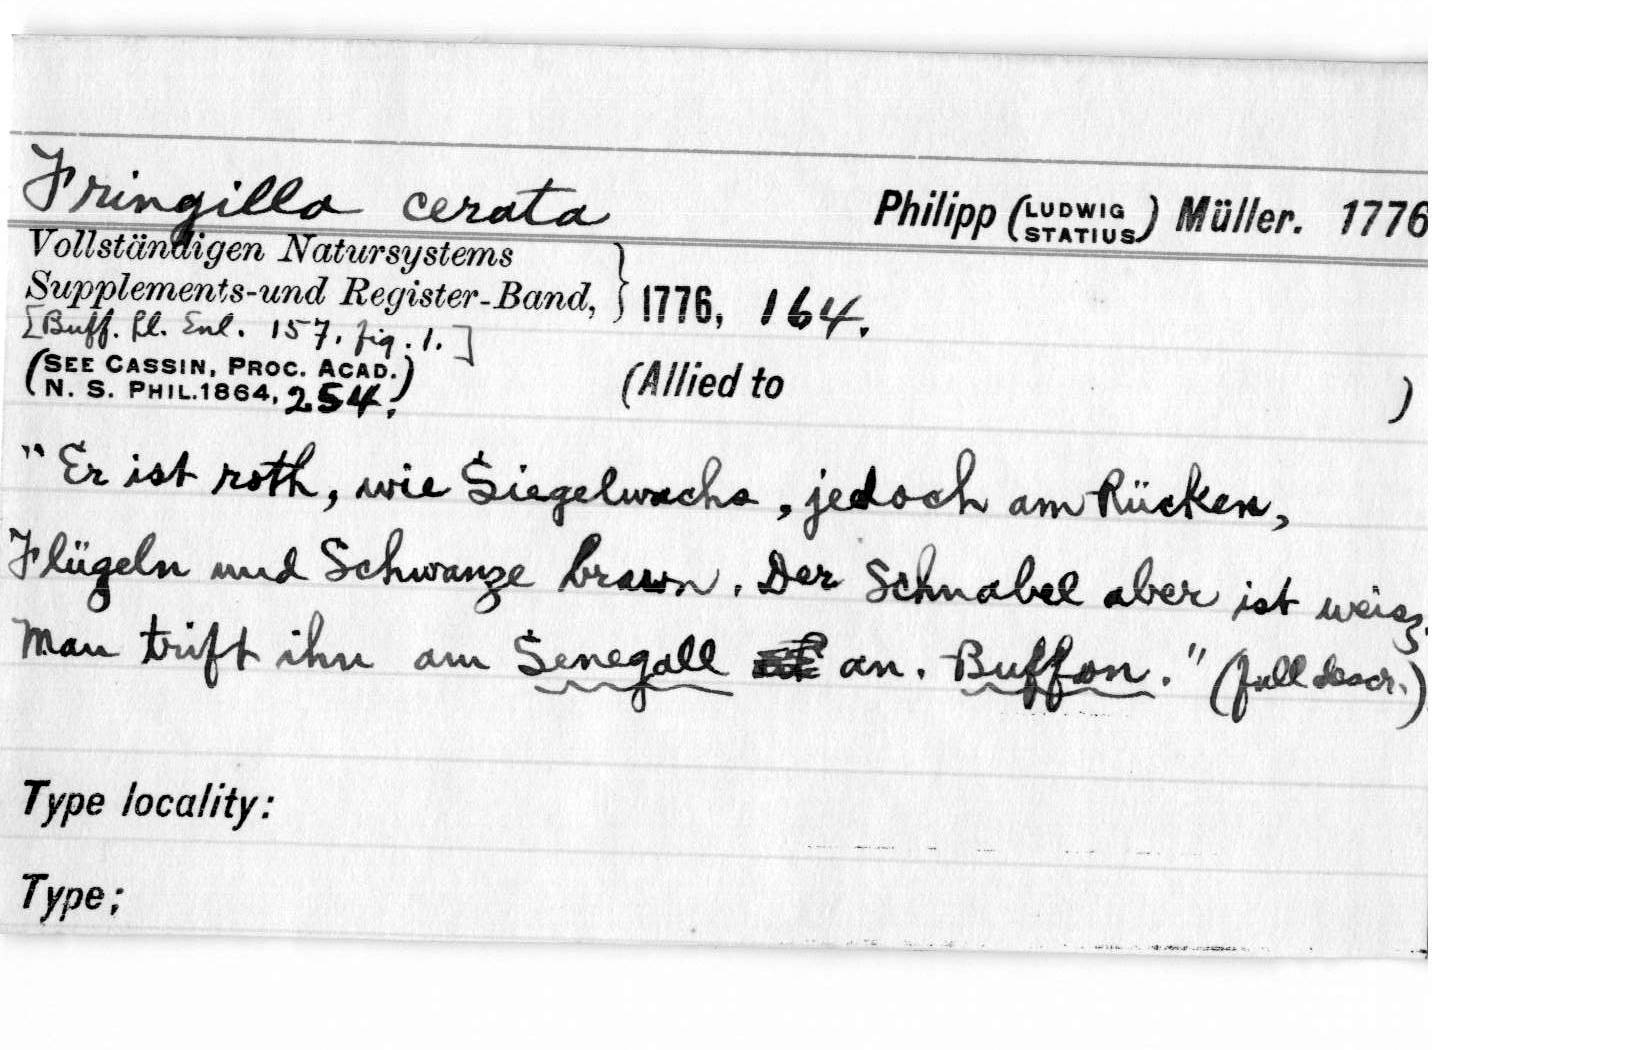 Fringilla cerata Philipp (LUDWIG STATIUS) Müller. 1776
Vollständigen Natursystems
Supplements-und Register-Band, } 1776, 164.
[Buff. Pl. Enl. 157. fig. 1.]
(SEE CASSIN, PROC. ACAD.
N. S. PHIL. 1864, 254.) (Allied to )
"Er ist roth, wie Siegelwachs, jedoch am Rücken,
Flügeln und Schwanze braun. Der Schnabel aber ist weisz.
Man trift ihn am Senegall an. Buffon." (full descr.)
Type locality:
Type;